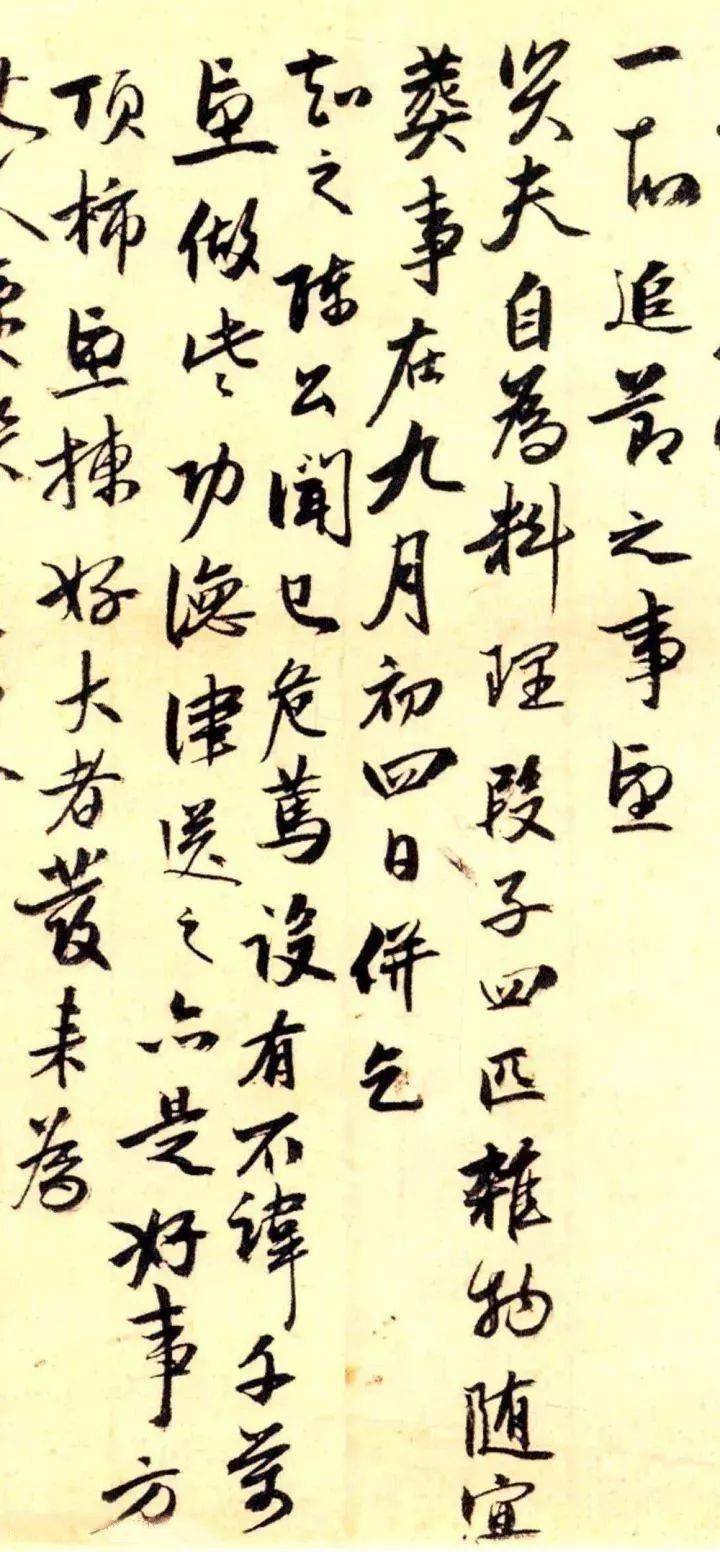 一追節之事望
夫自為料理段子四匹雜物随宜
葬事在九月初四日併乞
知之陳公聞已危篤設有不諱千萬
望做些功德津送之亦是好事方
頂柿望揀好大者發来為